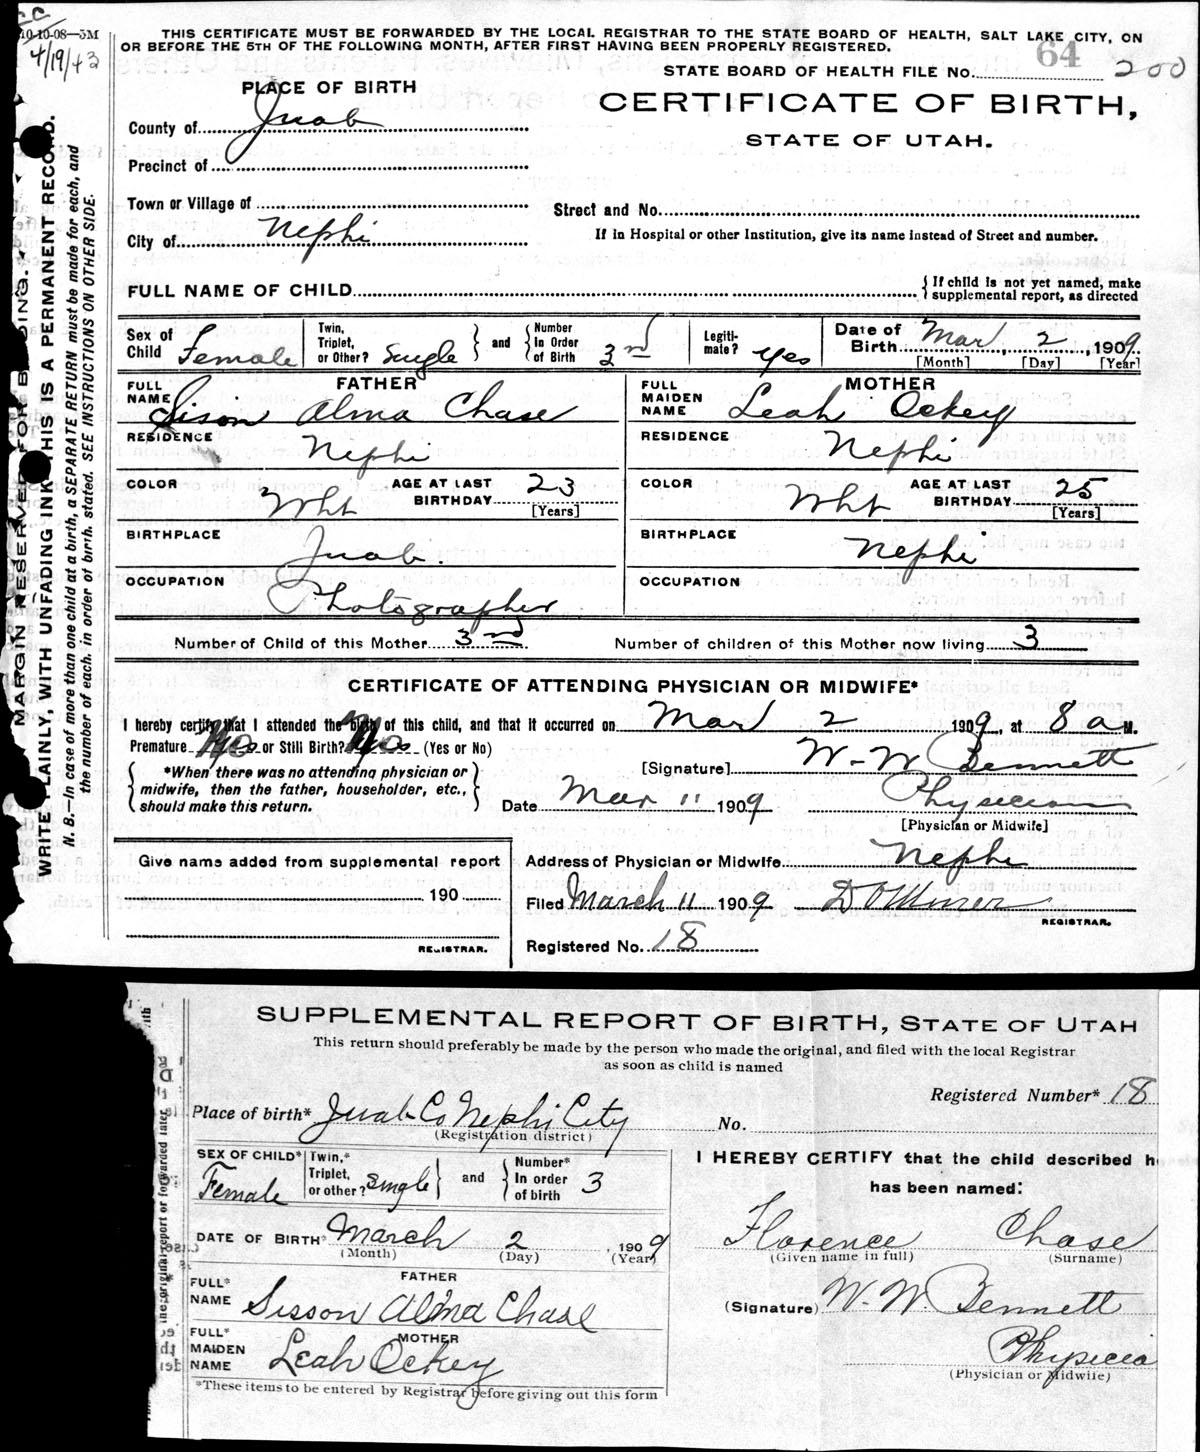 cc
10-10-08—3M
4/19/43
THIS CERTIFICATE MUST BE FORWARDED BY THE LOCAL REGISTRAR TO THE STATE BOARD OF HEALTH, SALT LAKE CITY, ON
OR BEFORE THE 5TH OF THE FOLLOWING MONTH, AFTER FIRST HAVING BEEN PROPERLY REGISTERED.
STATE BOARD OF HEALTH FILE No. 64 200
PLACE OF BIRTH
CERTIFICATE OF BIRTH,
STATE OF UTAH.
County of Juab
Precinct of
Town or Village of
Street and No.
City of Nephi
If in Hospital or other Institution, give its name instead of Street and number.
FULL NAME OF CHILD { If child is not yet named, make
supplemental report, as directed
Sex of Child Female
Twin, Triplet, or Other? Single } and { Number In Order of Birth 3rd
Legitimate? Yes
Date of Birth Mar 2, 1909
[Month] [Day] [Year]
FATHER
FULL NAME Sison Alma Chase
MOTHER
FULL MAIDEN NAME Leah Ockey
RESIDENCE Nephi
RESIDENCE Nephi
COLOR Wht AGE AT LAST BIRTHDAY 23 [Years]
COLOR Wht AGE AT LAST BIRTHDAY 25 [Years]
BIRTHPLACE Juab.
BIRTHPLACE Nephi
OCCUPATION Photographer
OCCUPATION
Number of Child of this Mother 3rd
Number of children of this Mother now living 3
CERTIFICATE OF ATTENDING PHYSICIAN OR MIDWIFE*
I hereby certify that I attended the birth of this child, and that it occurred on Mar 2 1909, at 8 a M.
Premature No or Still Birth? No (Yes or No)
{ *When there was no attending physician or
midwife, then the father, householder, etc.,
should make this return. }
[Signature] W-W Bennett
Date Mar 11 1909 Physician
[Physician or Midwife]
Give name added from supplemental report
190
REGISTRAR.
Address of Physician or Midwife Nephi
Filed March 11 1909 D O Miner
REGISTRAR.
Registered No. 18
MARGIN RESERVED FOR BINDING.
WRITE PLAINLY, WITH UNFADING INK—THIS IS A PERMANENT RECORD.
N. B.—In case of more than one child at a birth, a SEPARATE RETURN must be made for each, and
the number of each, in order of birth, stated. SEE INSTRUCTIONS ON OTHER SIDE.
SUPPLEMENTAL REPORT OF BIRTH, STATE OF UTAH
This return should preferably be made by the person who made the original, and filed with the local Registrar
as soon as child is named
Registered Number* 18
Place of birth* Juab Co Nephi City
(Registration district)
No.
SEX OF CHILD* Female
Twin,* Triplet, or other? Single } and { Number* In order of birth 3
I HEREBY CERTIFY that the child described h
has been named:
DATE OF BIRTH* March 2, 1909
(Month) (Day) (Year)
Florence Chase
(Given name in full) (Surname)
FATHER
FULL* NAME Sisson Alma Chase
(Signature) W. W. Bennett
MOTHER
FULL* MAIDEN NAME Leah Ockey
Physicia
(Physician or Midwife)
*These items to be entered by Registrar before giving out this form